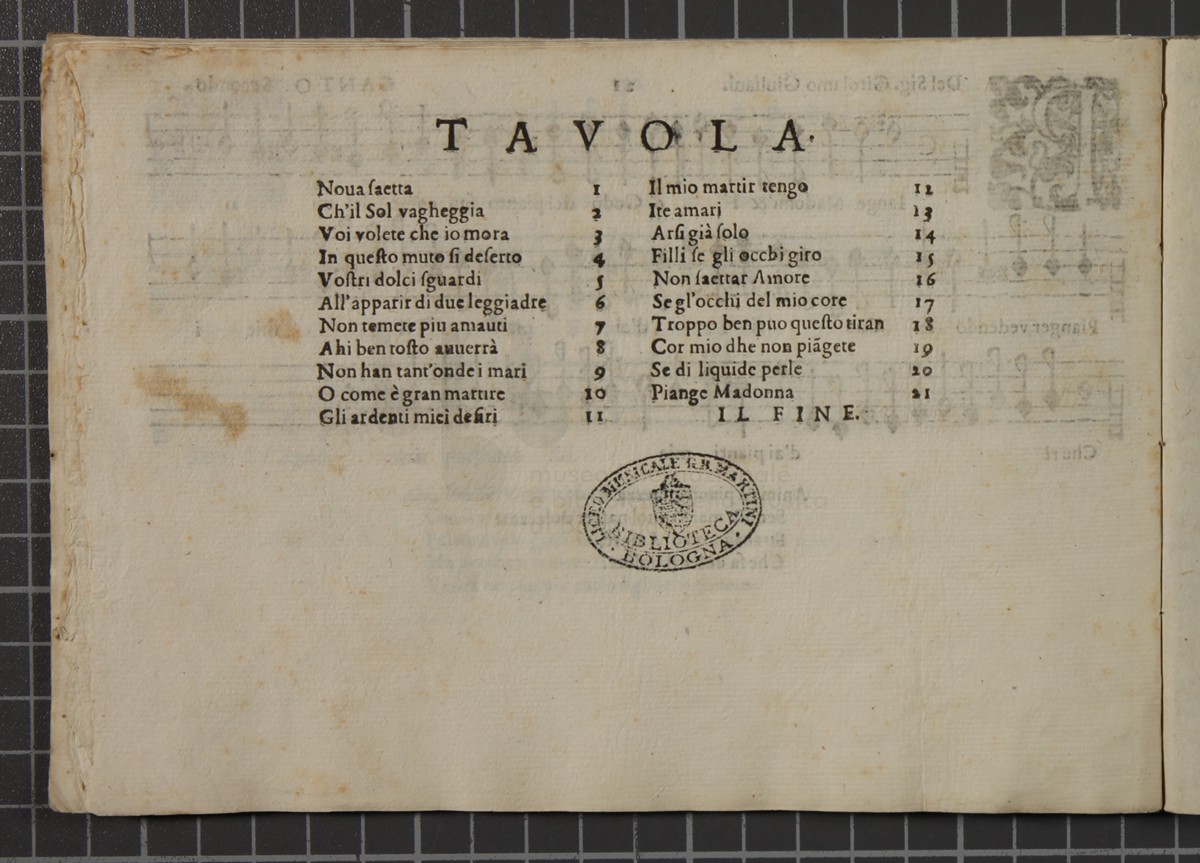 TAVOLA.
Noua ſaetta 1
Ch'il Sol vagheggia 2
Voi volete che io mora 3
In queſto muto ſi deſerto 4
Voſtri dolci ſguardi 5
All'apparir di due leggiadre 6
Non temete piu amauti 7
Ahi ben toſto auuerrà 8
Non han tant'onde i mari 9
O come è gran martire 10
Gli ardenti miei deſiri 11
Il mio martir tengo 12
Ite amari 13
Arſi già ſolo 14
Filli ſe gli occhi giro 15
Non ſaettar Amore 16
Se gl'occhi del mio core 17
Troppo ben puo queſto tiran 18
Cor mio dhe non piãgete 19
Se di liquide perle 20
Piange Madonna 21
IL FINE.
LICEO MUSICALE G.B. MARTINI
BIBLIOTECA
BOLOGNA